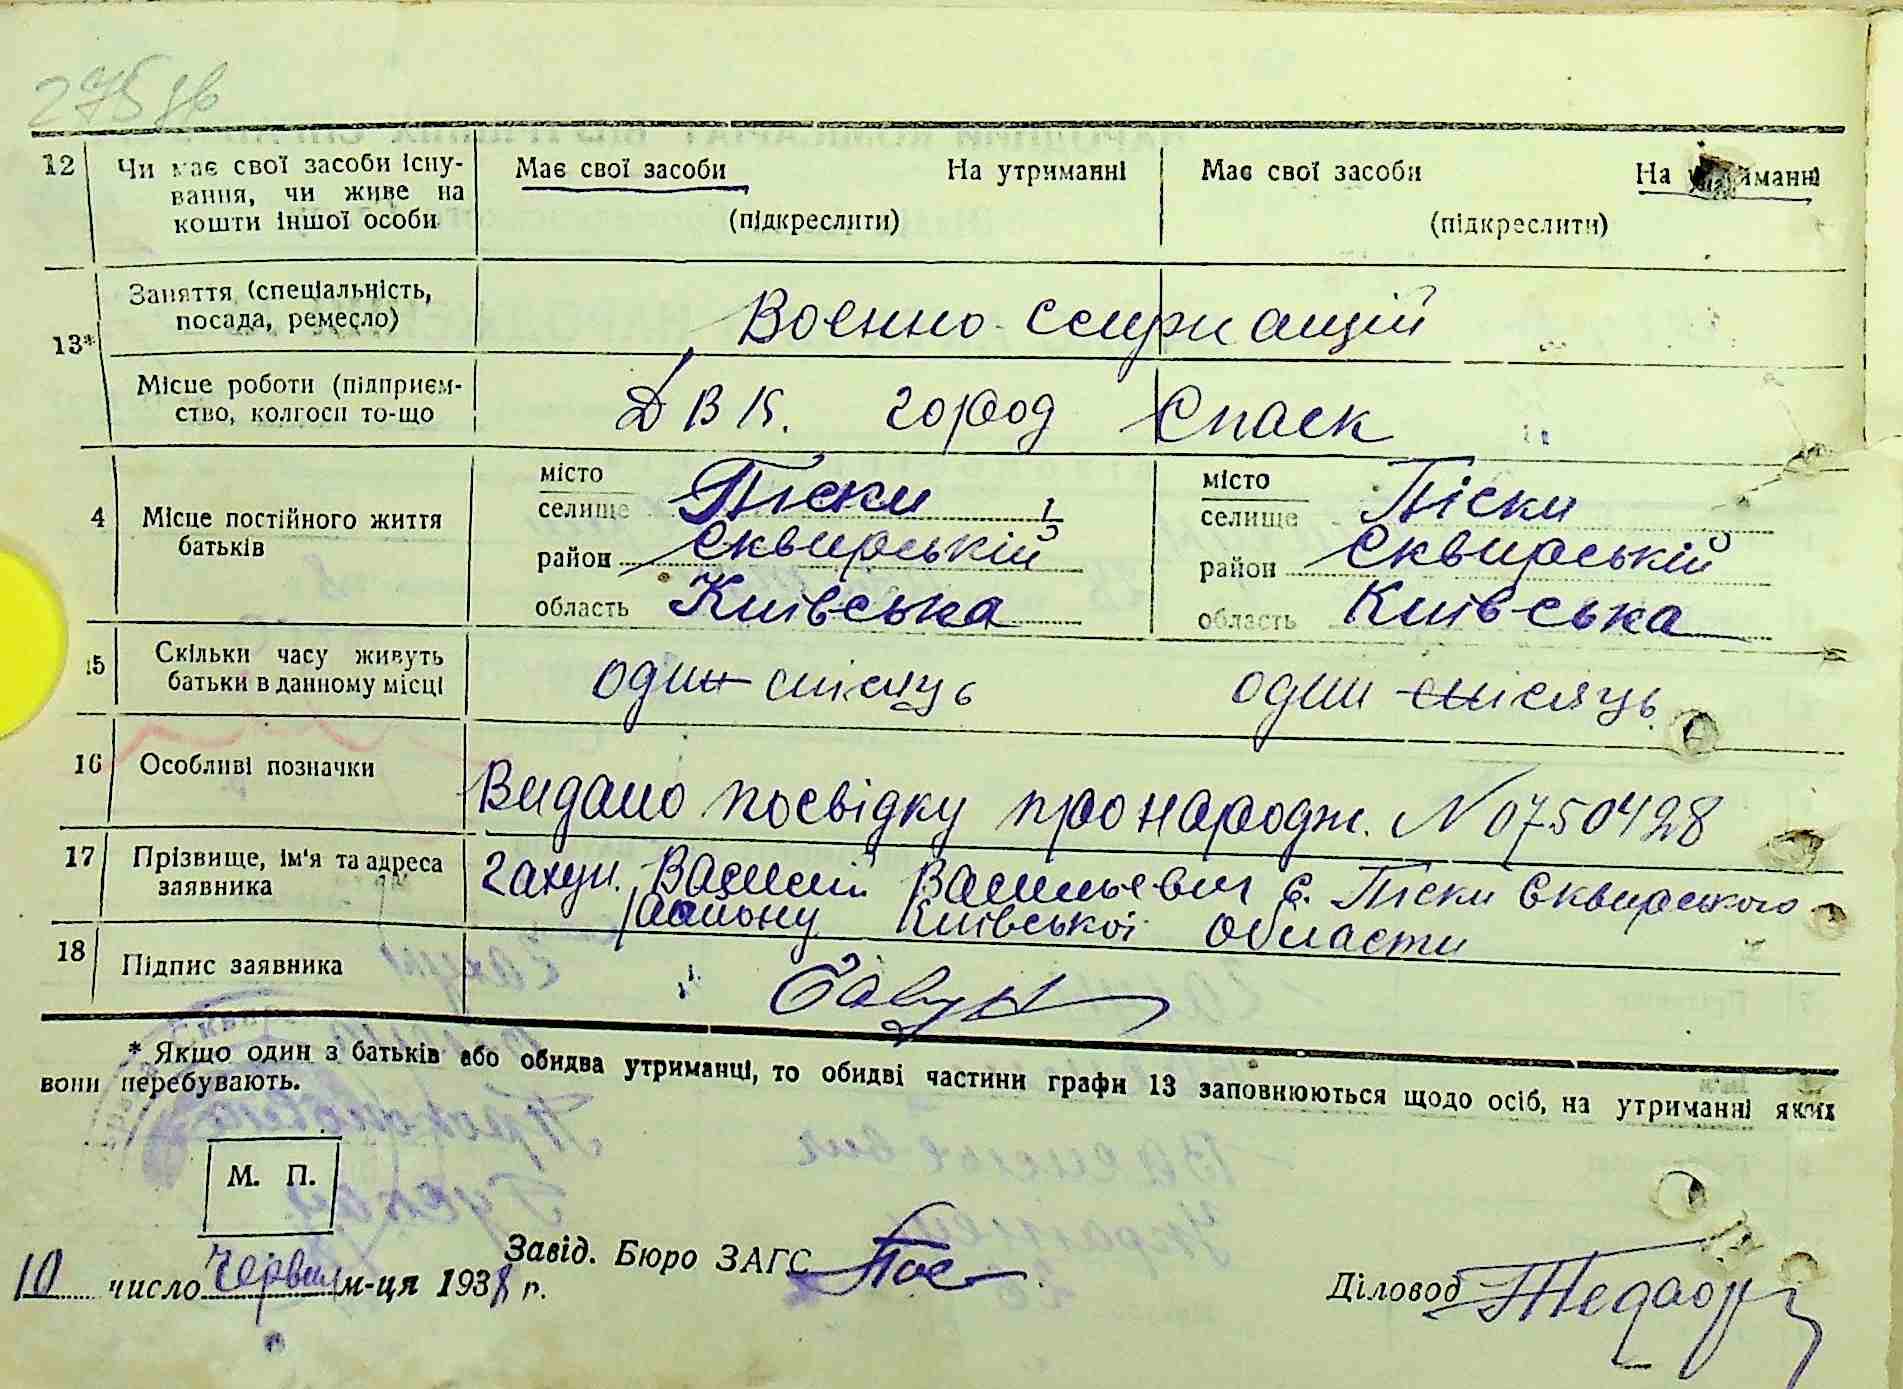 275 зв
12 Чи має свої засоби існування, чи живе на кошти іншої особи
Має свої засоби На утриманні Має свої засоби На утриманні
(підкреслити) (підкреслити)
13* Заняття (спеціальність, посада, ремесло)
Воєнно-служащій
Місце роботи (підприємство, колгосп то-що
ДВК. город Спаск
4 Місце постійного життя батьків
місто селище Піски місто селище Піски
район Сквирській район Сквирській
область Київська область Київська
15 Скільки часу живуть батьки в данному місці
один місяць один місяць
16 Особливі позначки
Видано посвідку про народж. N 0750428
17 Прізвище, ім'я та адреса заявника
Гахун. Василий Васильевич с. Піски Сквирського
району Київської области
18 Підпис заявника
* Якщо один з батьків або обидва утриманці, то обидві частини графи 13 заповнюються щодо осіб, на утриманні яких
вони перебувають.
М. П.
Завід. Бюро ЗАГС
10 число червня м-ця 1938 р.
Діловод